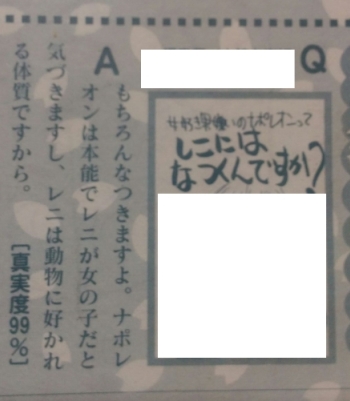 Q
女好き男嫌いのナポレオンって
レニには
なつくんですか?
A
もちろんなつきますよ。ナポレ
オンは本能でレニが女の子だと
気づきますし、レニは動物に好かれ
る体質ですから。[真実度99%]